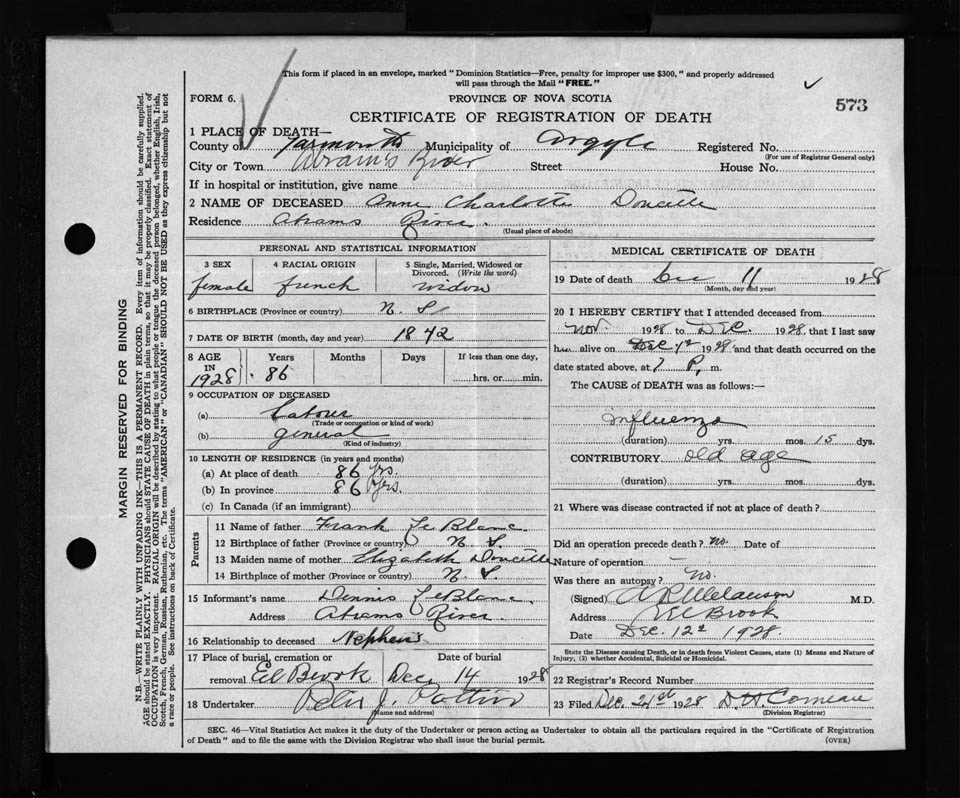 This form if placed in an envelope, marked "Dominion Statistics—Free, penalty for improper use $300," and properly addressed
will pass through the Mail "FREE."
FORM 6.
PROVINCE OF NOVA SCOTIA
573
CERTIFICATE OF REGISTRATION OF DEATH
1 PLACE OF DEATH—
County of Yarmouth Municipality of Argyle Registered No.
(For use of Registrar General only)
City or Town Abram's River Street House No.
If in hospital or institution, give name
2 NAME OF DECEASED Anne Charlotte Doucette
Residence Abrams River.
(Usual place of abode)
PERSONAL AND STATISTICAL INFORMATION
3 SEX 4 RACIAL ORIGIN 5 Single, Married, Widowed or
Divorced. (Write the word)
female french widow
6 BIRTHPLACE (Province or country) N. S
7 DATE OF BIRTH (month, day and year) 1842
8 AGE Years Months Days If less than one day,
IN
1928 86 hrs. or min.
9 OCCUPATION OF DECEASED
(a) Labour
(Trade or occupation or kind of work)
(b) general
(Kind of industry)
10 LENGTH OF RESIDENCE (in years and months)
(a) At place of death 86 yrs.
(b) In province 86 yrs.
(c) In Canada (if an immigrant)
Parents
11 Name of father Frank LeBlanc
12 Birthplace of father (Province or country) N. S.
13 Maiden name of mother Elizabeth Doucette
14 Birthplace of mother (Province or country) N. S.
15 Informant's name Dennis LeBlanc.
Address Abrams River.
16 Relationship to deceased Nephew
17 Place of burial, cremation or Date of burial
removal Eel Brook Dec 14 1928
18 Undertaker J. Pottier
(Name and address)
MEDICAL CERTIFICATE OF DEATH
19 Date of death Dec 11 1928
(Month, day and year)
20 I HEREBY CERTIFY that I attended deceased from
Nov. 1928 to Dec. 1928, that I last saw
h alive on Dec 1928 and that death occurred on the
date stated above, at P. m.
The CAUSE of DEATH was as follows:—
Influenza
(duration) yrs. mos. 15 dys.
CONTRIBUTORY old age
(duration) yrs. mos. dys.
21 Where was disease contracted if not at place of death?
Did an operation precede death? no. Date of
Nature of operation
Was there an autopsy? no.
(Signed) M.D.
Address Eel Brook
Date Dec. 12th 1928.
State the Disease causing Death, or in death from Violent Causes, state (1) Means and Nature of
Injury, (2) whether Accidental, Suicidal or Homicidal.
22 Registrar's Record Number
23 Filed Dec. 21st 1928 D. H. Comeau
(Division Registrar)
SEC. 46—Vital Statistics Act makes it the duty of the Undertaker or person acting as Undertaker to obtain all the particulars required in the "Certificate of Registration
of Death" and to file the same with the Division Registrar who shall issue the burial permit.
(OVER)
MARGIN RESERVED FOR BINDING
N.B.—WRITE PLAINLY WITH UNFADING INK—THIS IS A PERMANENT RECORD. Every item of information should be carefully supplied.
AGE should be stated EXACTLY. PHYSICIANS should STATE CAUSE OF DEATH in plain terms, so that it may be properly classified. Exact statement of
OCCUPATION is very important. RACIAL ORIGIN will be described by stating to what people or tongue the deceased person belonged, whether English, Irish,
Scotch, French, German, Russian, Ruthenian, etc. The terms "AMERICAN" or "CANADIAN" SHOULD NOT BE USED as they express citizenship but not
a race or people. See instructions on back of Certificate.